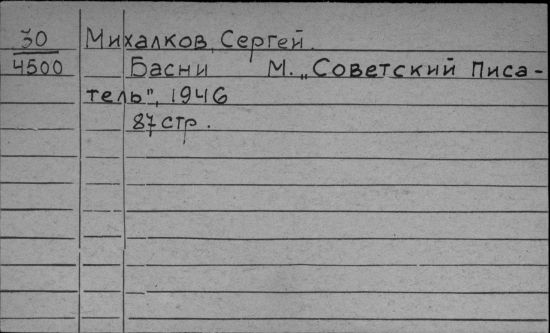 30 Михалков, Сергей.
4500 Басни М. „Советский Писа-
тель", 1946
87 стр.